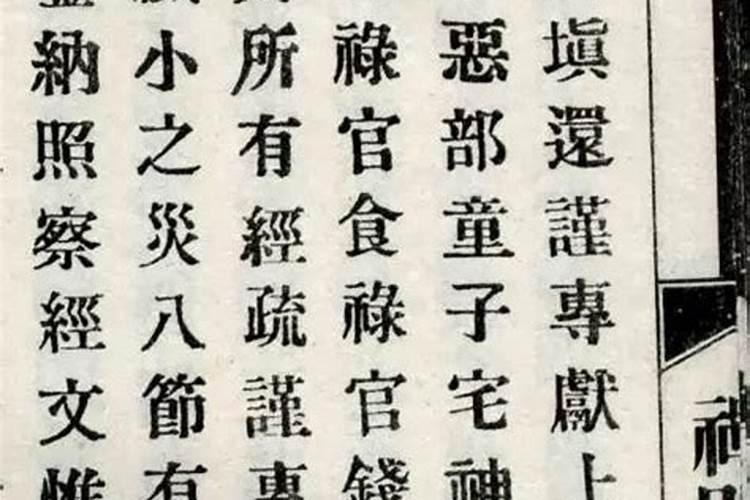 塡還謹專獻上
惡部童子宅神
祿官食祿官錢
所有經疏謹專
小之災八節有
納照察經文惟